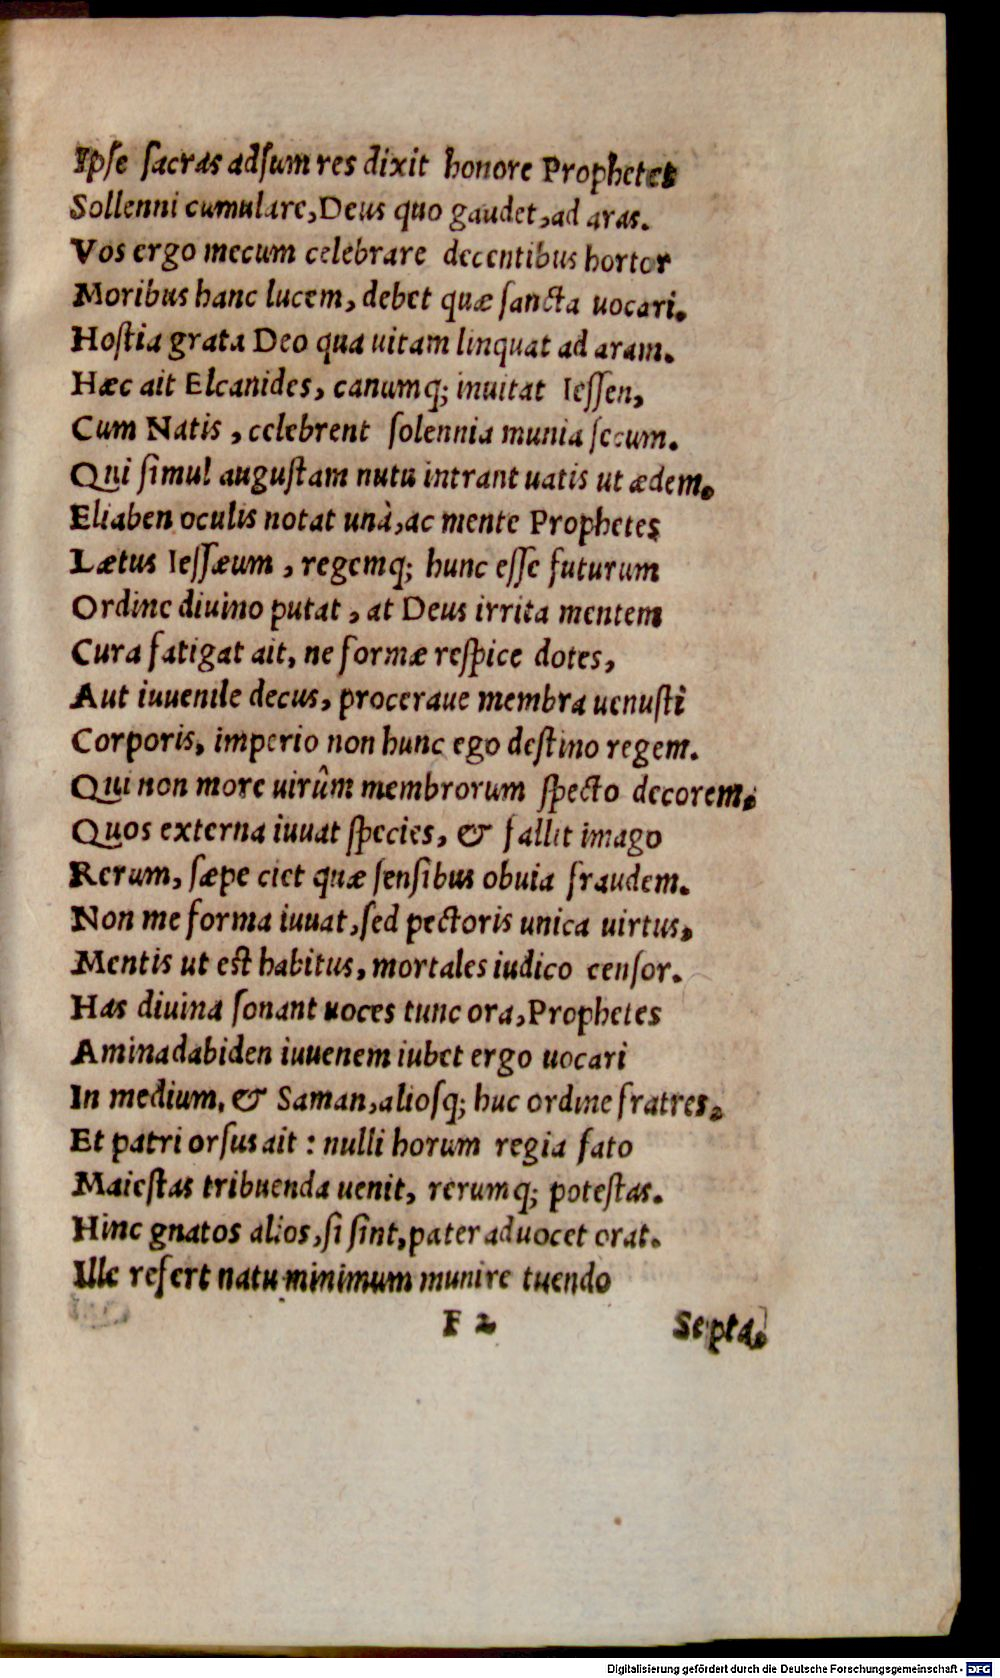 Ipse sacras adsum res dixit honore Prophetes
Sollenni cumulare, Deus quo gaudet, ad aras.
Vos ergo mecum celebrare decentibus hortor
Moribus hanc lucem, debet quæ sancta uocari.
Hostia grata Deo qua uitam linquat ad aram.
Hæc ait Elcanides, canumq; inuitat Iessen,
Cum Natis, celebrent solennia munia secum.
Qui simul augustam nutu intrant uatis ut ædem.
Eliaben oculis notat unà, ac mente Prophetes
Lætus Iessæum, regemq; hunc esse futurum
Ordine diuino putat, at Deus irrita mentem
Cura fatigat ait, ne formæ respice dotes,
Aut iuuenile decus, proceraue membra uenusti
Corporis, imperio non hunc ego destino regem.
Qui non more uirûm membrorum specto decorem.
Quos externa iuuat species, & fallit imago
Rerum, sæpe ciet quæ sensibus obuia fraudem.
Non me forma iuuat, sed pectoris unica uirtus,
Mentis ut est habitus, mortales iudico censor.
Has diuina sonant uoces tunc ora, Prophetes
Aminadabiden iuuenem iubet ergo uocari
In medium, & Saman, aliosq; huc ordine fratres.
Et patri orsus ait : nulli horum regia fato
Maiestas tribuenda uenit, rerumq; potestas.
Hinc gnatos alios, si sint, pater aduocet orat.
Ille refert natu minimum munire tuendo
F 2 Septa.
Digitalisierung gefördert durch die Deutsche Forschungsgemeinschaft - DFG